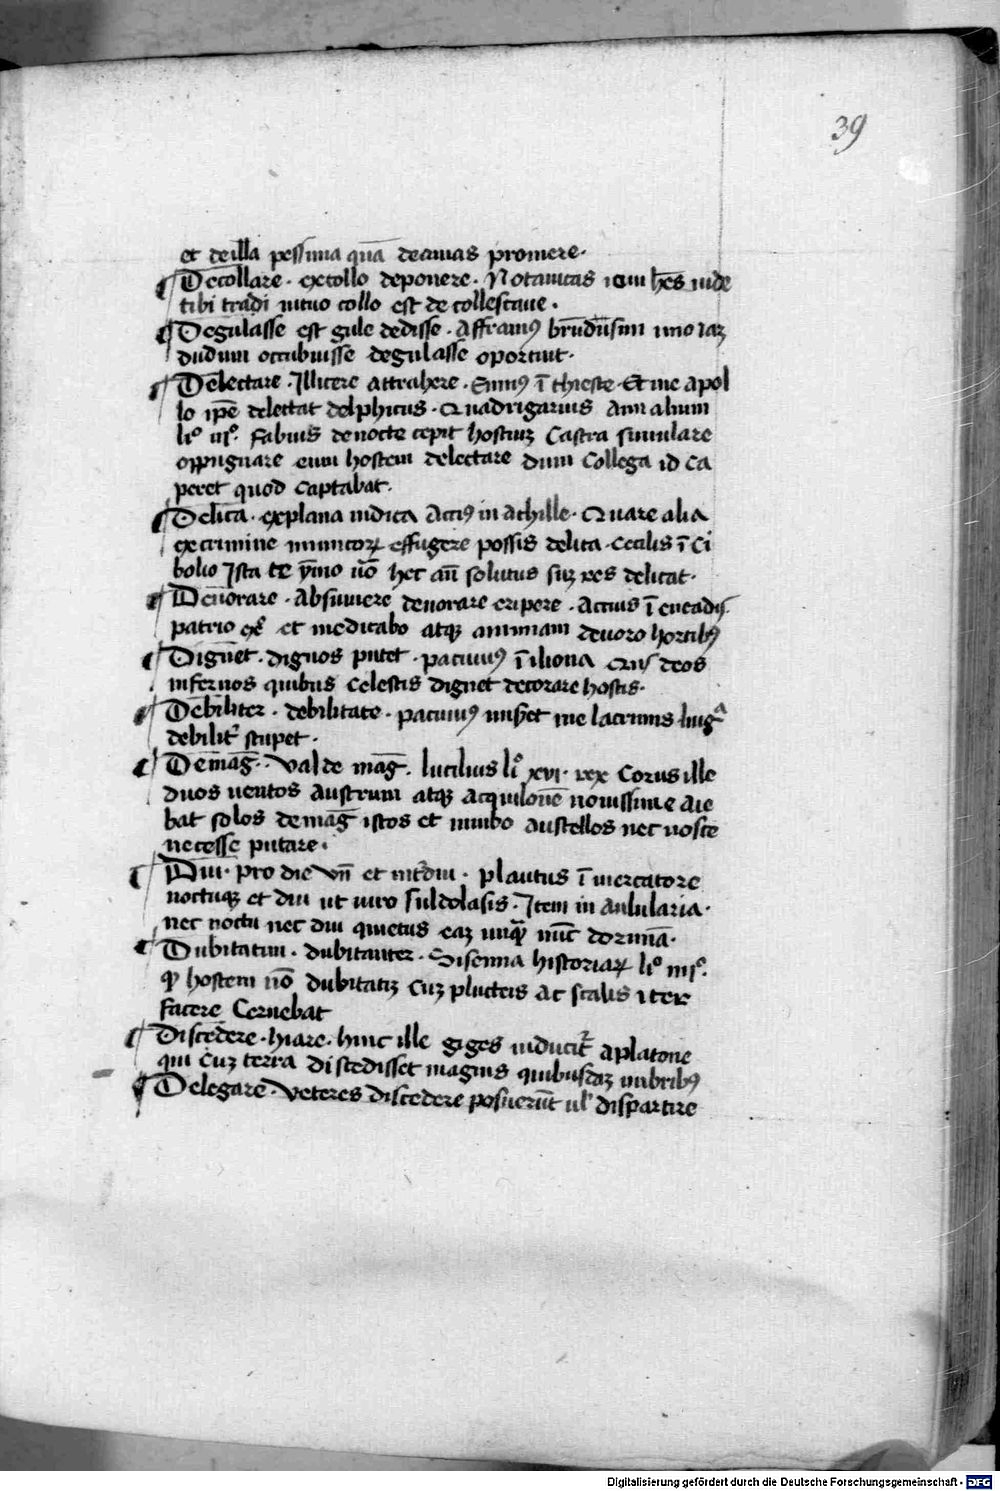 39
et deilla pessima quā decimas promere·
Decollare · excollo deponere · Notauicas icum hēs uide
tibi tradi nituo collo est de collescaue ·
Degulasse est gule dedisse · Affranius brūdusim uno iaz
dudum occubuisse degulasse oportuit·
Delectare · Illicere attrahere · Enniꝰ ī thieste · Et me apol
lo ipē delectat delphicus · Quadrigarius Ann alium
li° iii° · Fabius denocte cepit hostiuz Castra simulare
oppugnare eum hostem delectare dum Collega id ca
peret quod captabat·
Delica · explana indica Actiꝰ in achille · Quare alia
excrimine inimicoꝝ effugere possis delica · Cecilis ī Ci
bolio Ista te ymo nō hec aū solutus suz res delicat·
Deuorare · absumere deuorare eripere · Actius ī eneadis·
patrio exē et medicabo atqꝫ animam deuoro hostibꝰ
Dignet · dignos putet · pacuuiꝰ ī iliona Cius deos
infernos quibus celestis dignet decorare hostis·
Debiliter · debilitate · pacuuiꝰ
debilit̄ stupet ·
Demag̅ · valde mag̅ · lucilius li° xvi · rex Corus ille
duos uentos austrum atqꝫ acquilonē nouissime aie
bat solos demag̅ istos et nimbo austellos nec nosce
necesse putare ·
Diu · pro die vn̄ et int̄diu · plautus ī mercatore
noctuqꝫ et diu ut uiro suldolasis · Item in aulularia ·
nec noctu nec diu quietus eaz unqꝫ nūc dormiā ·
Dubitatim · dubitanter · Sisenna historiaꝝ li° iiii°·
qꝫ hostem nō dubitatiz cuz pluteis ac scalis iter
facere Cernebat
Discedere · hiare · hinc ille giges inducit̄ aplatone
qui cuz terra discedisset magnis quibusdaz imbribꝰ
Delegare · veteres discedere posuerūt ul' dispartire
Digitalisierung gefördert durch die Deutsche Forschungsgemeinschaft - DFG